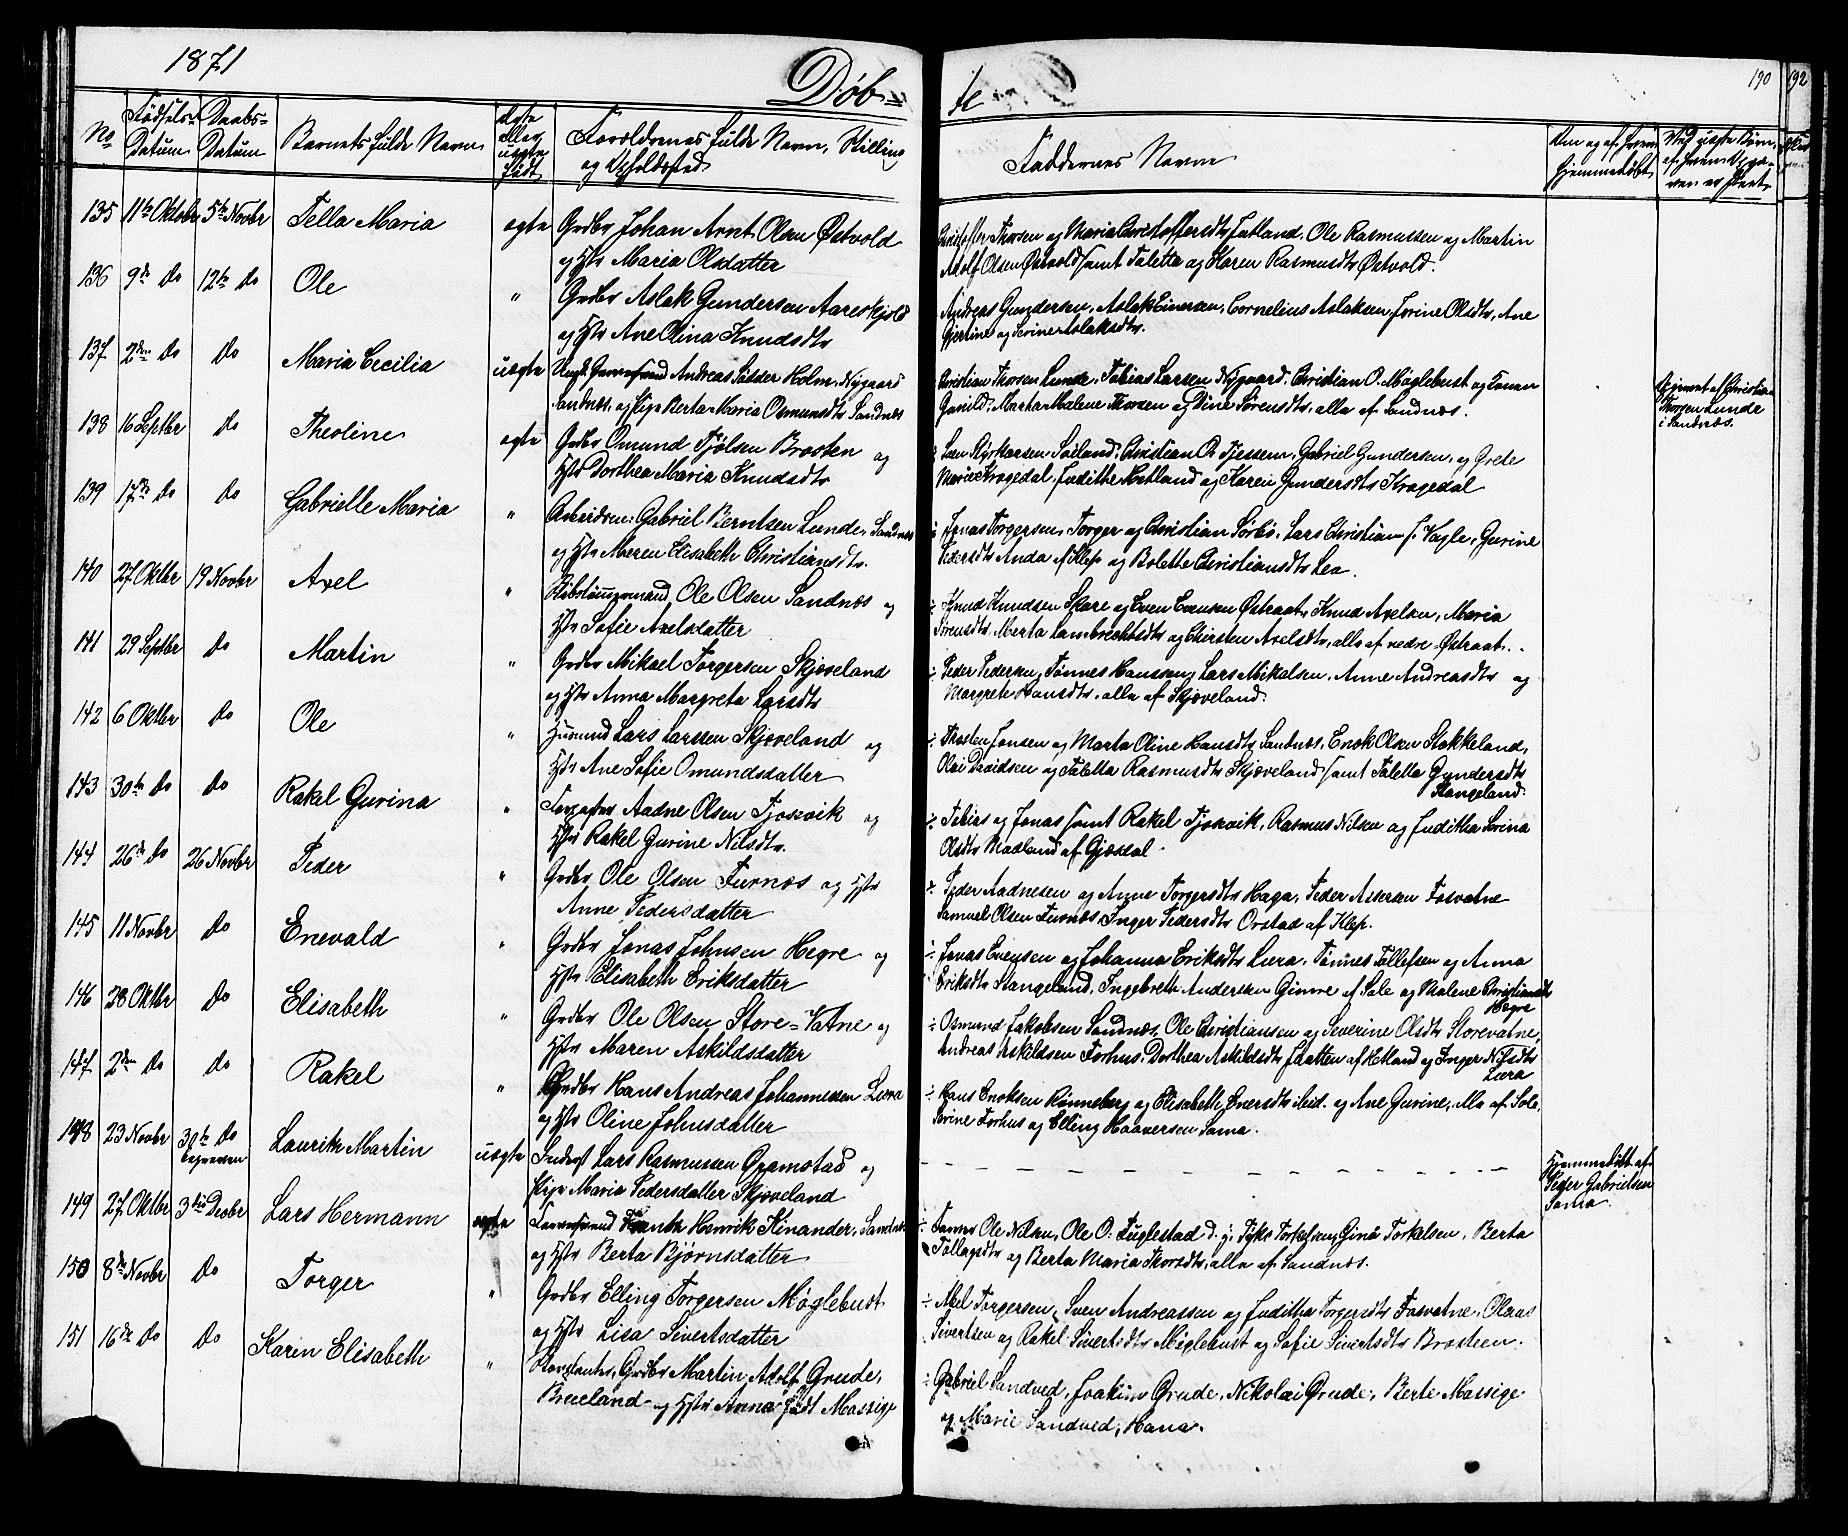 1871
Døb-
te
190
192
No
Fødsels-
Datum
Daabs-
Datum
Barnets fulde Navn
Ægte
eller
uægte
født
Forældrenes fulde Navn, Stilling
og Opholdssted
Faddernes Navne
135 11te Oktobr 5te Novbr Tella Maria ægte Grdbr Johan Arnt Olsen Østvold
og Hstr Maria Olsdatter
Christoffer Thorsen og Maria Christoffersdtr Fatland, Ole Rasmussen og Martin
Adolf Olsen Østvold samt Taletta og Karen Rasmusdtr Østvold.
136 9de do 12te do Ole " Grdbr Aslak Gundersen Aareskjold
og Hstr Ane Olina Knudsdtr
Andreas Gundersen, Aslak Einersen, Cornelius Aslaksen, Jorine Olsdtr, Ane
Gjertine og Serine Aslaksdtr.
137 2den do do Maria Cecilia uægte Ungk. Andreas Holm, Nygaard
Sandnæs, og Pige Berta Maria Osmundsdtr Sandnæs
Christian Thorsen Lunde, Tobias Larsen Nygaard, Christian O. Møglebust og Konen
Gunild, Marta Malene Thorsen og Dine Sørensdtr, alle af Sandnæs.
Christian
Thorsen Lunde
i Sandnæs.
138 16 Septbr do Theoline ægte Grdbr Omund Tjølsen Brosten og
Hstr Dorthea Maria Knudsdtr
Christian O. Tjessem, Gabriel Gundersen, og Grete
Marie Kragedal, Judithe Hetland og Karen Gundersdtr Kragedal
139 17de do do Gabrielle Maria " Arbeidsm: Gabriel Berntsen Lunde, Sandnæs
og Hstr Maren Elisabeth Christiansdtr.
Jonas Torgersen, Torger og Christian Sørbø, Lars Christian s. Vagle, Gurine
Pedersdtr Anda af Klep og Bolette Christiansdtr Lea.
140 27 Oktbr 19 Novbr Axel " Skibstømmermand Ole Olsen Sandnæs og
Hstr Sofie Axelsdatter
÷ Knud Knudsen Skare og Even Evensen Østraat, Knud Axelsen, Maria
Sørensdtr, Marta Lambrechtsdtr og Chirsten Axelsdtr, alle af nedre Østraat.
141 29 Septbr do Martin " Grdbr Mikael Torgersen Skjæveland
og Hstr Anna Margreta Larsdtr
÷ Peder Pedersen, Tønnes Hansen, Lars Mikalsen, Anne Andreasdtr og
Margrete Hansdtr, alle af Skjæveland.
142 6 Oktbr do Ole " Husmand Lars Larssen Skjæveland og
Hstr Ane Sofie Omundsdatter
÷ Thosten Jonsen og Marta Oline Hansdtr Sandnæs, Enok Olsen Stokkeland,
Olai Davidsen og Taletta Rasmusdtr Skjæveland samt Taletta Gundersdtr
Stangeland.
143 30te do do Rakel Gurina " Aadne Olsen Tjosevik og
Hstr Rakel Gurine Nilsdtr.
÷ Tobias og Jonas samt Rakel Tjosevik, Rasmus Nilsen og Juditha Serina
Olsdtr Madland af Gjæsdal.
144 26de do 26 Novbr Peder " Grdbr Ole Olsen Furnæs og Hstr
Anne Pedersdatter
÷ Peder Aadnesen og Anne Torgersdtr Haga, Peder Assersen Fosvatne
Samuel Olsen Furnæs, Inger Pedersdtr Orstad af Klep.
145 11 Novbr do Enevald " Grdbr Jonas Johnsen Hegre og
Hstr Elisabeth Eriksdatter
÷ Jonas Evensen og Johanna Eriksdtr Lura, Tønnes Tollefsen og Anna
Eriksdtr Stangeland, Ingebreth Andersen Gimre af Sole og Malene Christiansdtr
Hegre
146 28 Oktbr do Elisabeth " Grdbr Ole Olsen Store-Vatne og
Hstr Maren Askildsdatter
÷ Osmund Jakobsen Sandnæs, Ole Christiansen og Severine Olsdtr Storevatne,
Andreas Askildsen Forhus, Dorthea Askildsdtr Slatten af Hetland og Inger Nilsdtr
Lura
147 2den do do Rakel " Grdbr Hans Andreas Johannessen Lura
og Hstr Oline Johnsdatter
÷ Hans Enoksen Rønneberg og Elisabeth Eversdtr ibid. og Ane Gurine, alle af Sole,
Serine Forhus og Elling Haaversen Soma.
148 23 Novbr 30te do Lauritz Martin uægte Inderst Lars Rasmussen Gramstad og
begraven
Pige Maria Pedersdatter Skjæveland
Hjemmedøbt af
Peder Gabrielsen
Soma.
149 27 Oktbr 3die Decbr Lars Hermann ægte Farversvend Frantz Henrik Kinander, Sandnæs
og Hstr Berta Bjørnsdatter
÷ Ole Nilsen, Ole O. Fuglestad d. y. Torkelsen, Gina Torkelsen, Berta
Tollagsdtr og Berta Maria Thorsdtr, alle af Sandnæs.
150 8de Novbr do Torger " Grdbr Elling Torgersen Møglebust
og Hstr Lisa Sivertsdatter
÷ Abel Torgersen, Sven Andreassen og Juditha Torgersdtr Fosvatne, Olaus
Sivertsen og Rakel Sivertsdtr Møglebust og Sofie Sivertsdtr Brosteen.
151 16de do do Karen Elisabeth " Grdbr Martin Adolf Grude,
Brueland og Hstr Anna født Massige
÷ Gabriel Sandved, Joakim Grude, Nikolai Grude, Berte Massige
og Marie Sandved, Hana.